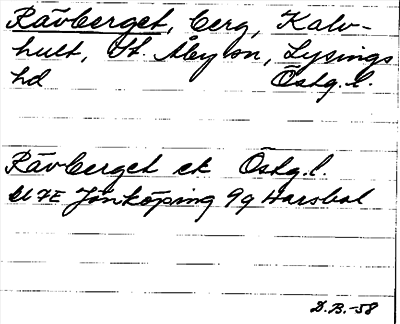 Rävberget, berg, Kalv-
hult, St. Åby sn, Lysings
hd Östg.l.
Rävberget ek Östg.l.
Jönköping 9g Harsbol
D.B.-58